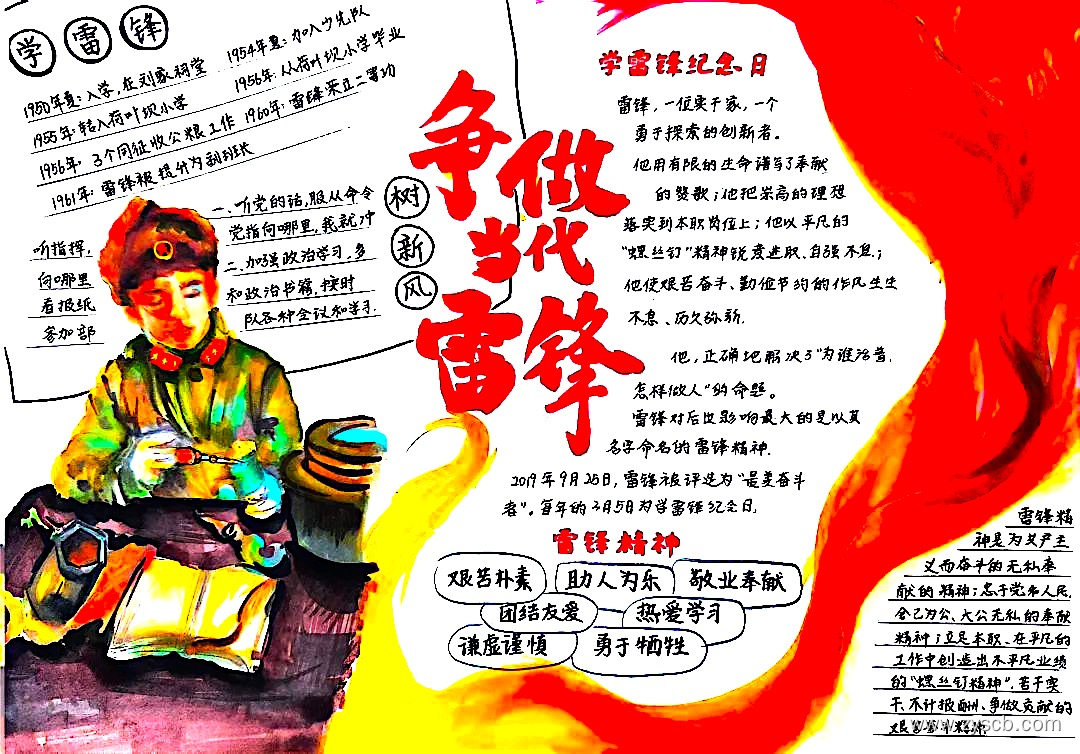 学雷锋
1950年夏:入学,在刘家祠堂 1954年夏:加入少先队
1955年:转入荷叶坝小学 1956年:从荷叶坝小学毕业
1956年: 3个同征收公粮工作 1960年:雷锋荣立二等功
1961年:雷锋被提分为副班长
一、听党的话,服从命令
听指挥,党指向哪里,我就冲
向哪里 二、加强政治学习,多
看报纸和政治书籍,按时
参加部队各种会议和学习.
争做
当代
雷锋
树新风
学雷锋纪念日
雷锋,一位实干家,一个
勇于探索的创新者。
他用有限的生命谱写了奉献
的赞歌;他把崇高的理想
落实到本职岗位上;他以平凡的
“螺丝钉”精神锐意进取、自强不息;
他使艰苦奋斗、勤俭节约的作风生生
不息、历久弥新.
他,正确地解决了“为谁活着,
怎样做人”的命题。
雷锋对后世影响最大的是以其
名字命名的雷锋精神.
2019年9月25日,雷锋被评选为“最美奋斗
者”。每年的3月5日为学雷锋纪念日.
雷锋精神
艰苦朴素 助人为乐 敬业奉献
团结友爱 热爱学习
谦虚谨慎 勇于牺牲
雷锋精
神是为共产主
义而奋斗的无私奉
献的精神;忠于党和人民,
舍己为公、大公无私的奉献
精神;立足本职、在平凡的
工作中创造出不平凡业绩
的“螺丝钉精神”.苦干实
干、不计报酬、争做贡献的
艰苦奋斗精神